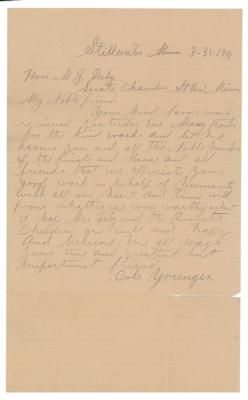 Stillwater Minn 3-31-1901
Hon. M. J. Daly
Senate Chamber, St Paul, Minn,
My Noble friend
Your Kind favor was
received Gratitude and Many thanks
for the Kind words and let me
assure you and all the Noble Members
of the Senate and House and all
friends that we appreciate your
good work in behalf of humanity
with all our heart and time will
prove whether we were worthy or not
hope Mrs Daly and the
Children are well and happy
And believe me all ways
your true and grateful but
unfortunate friend
Cole Younger